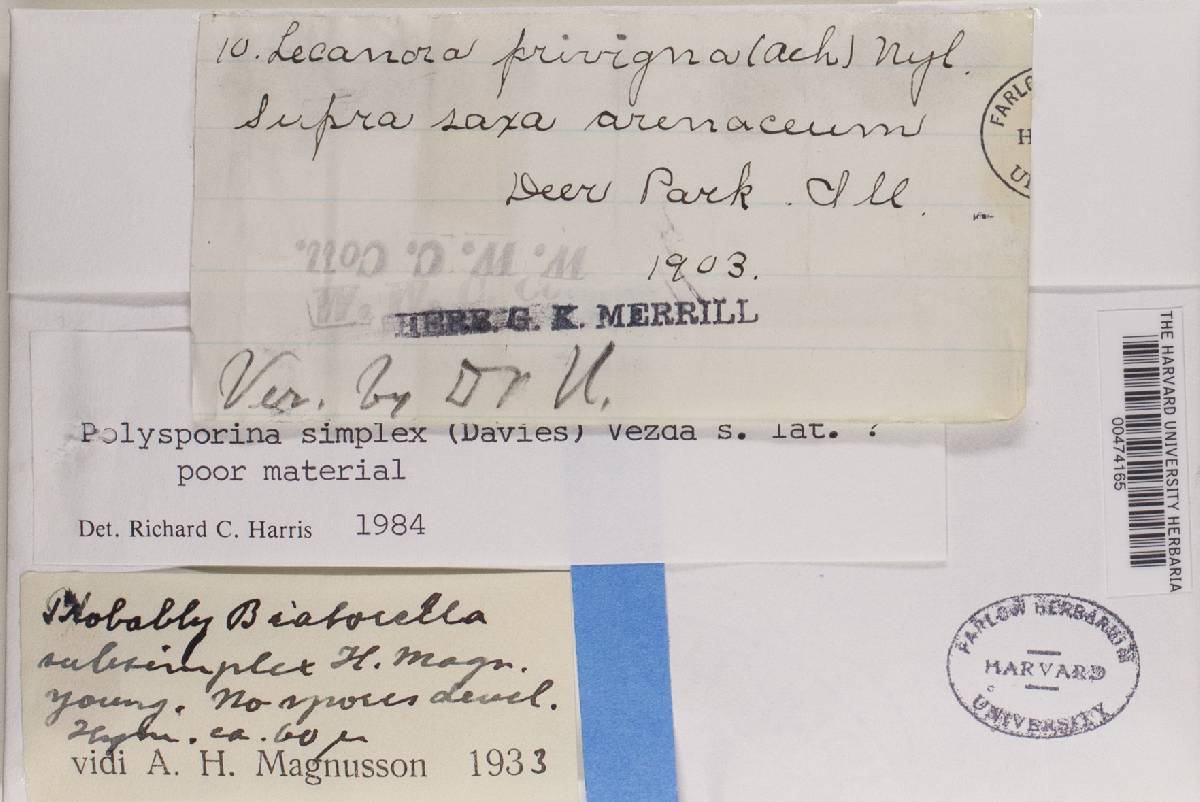 10. Lecanora privigna (Ach) Nyl.
Supra saxa arenaceum
Deer Park. Ill.
1903.
W. W. C. Coll.
HERB. G. K. MERRILL
Ver. by Dr U.
Polysporina simplex (Davies) Vezda s. lat. ?
poor material
Det. Richard C. Harris 1984
Probably Biatorella
subsimplex H. Magn.
young. No spores devel.
Hym. ca. 60 µ
vidi A. H. Magnusson 1933
THE HARVARD UNIVERSITY HERBARIA
00474165
FARLOW HERBARIUM
HARVARD
UNIVERSITY
FARLO
H
U